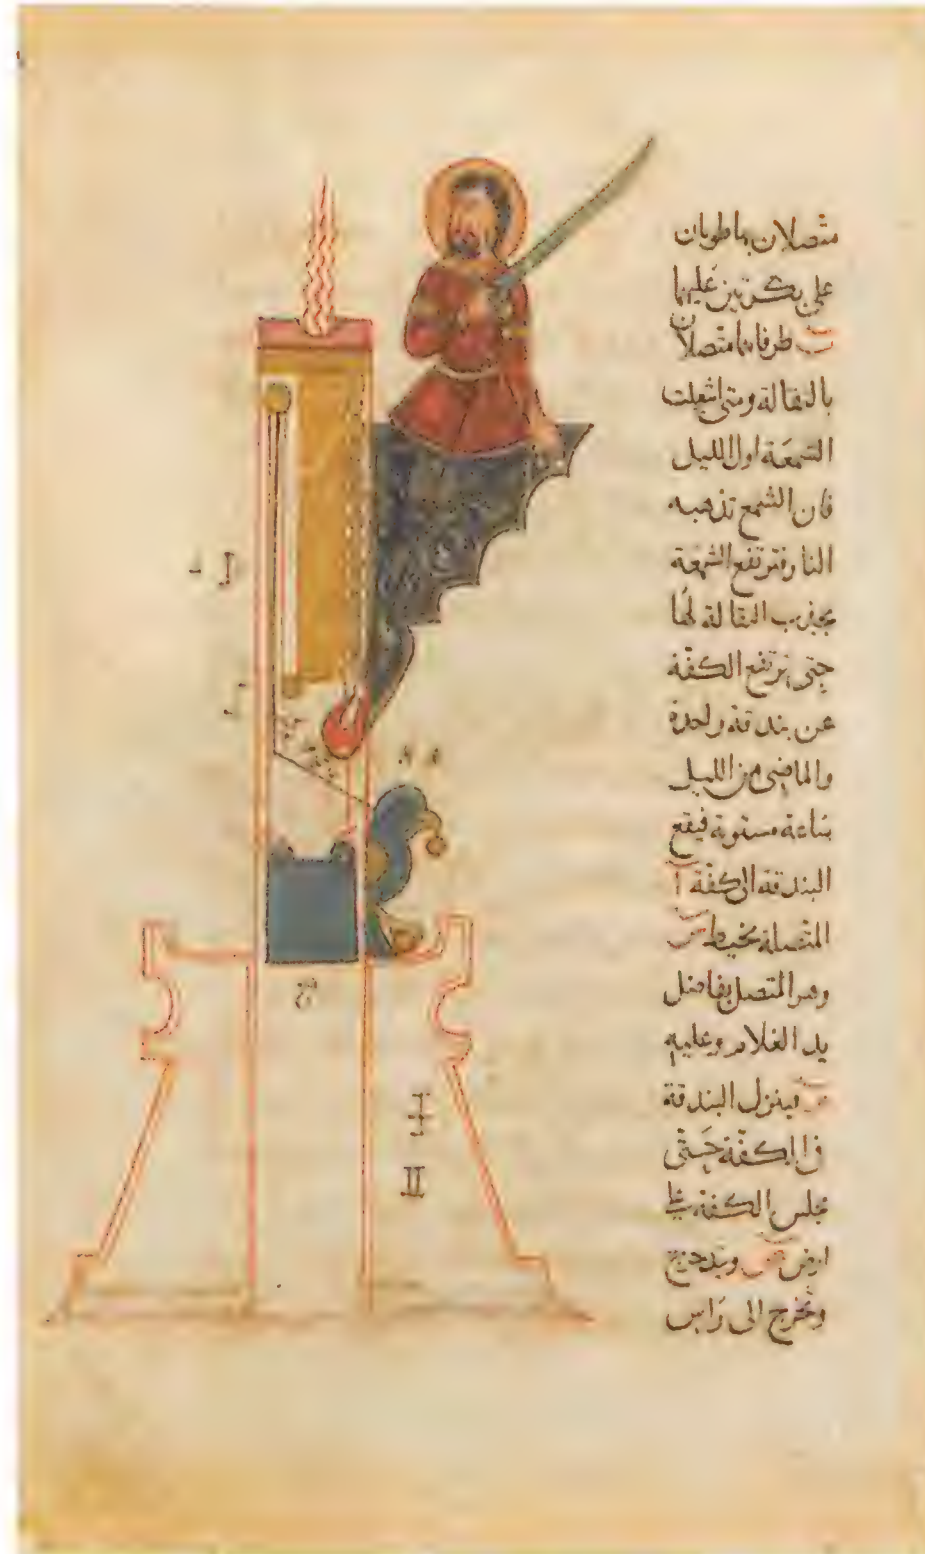 متصلان بها طويان
على بكرتين عليهما
طرفاهما متصلان
بالثقالة ومتى اشعلت
الشمعة اول الليل
فان الشمع تذهبه
النار فترتفع الشمعة
بجذب الثقالة لها
حتى ترتفع الكفة
عن بندقة واحدة
والماضى من الليل
ساعة مستوية فيقع
البندقة الى كفة آ
المتصلة بخيط س
وهو المتصل بفاضل
يد الغلام وعليه
فينزل البندقة
فى الكفة حتى
تجلس الكفة على
ارض ص ويتدحرج
وتخرج الى راس